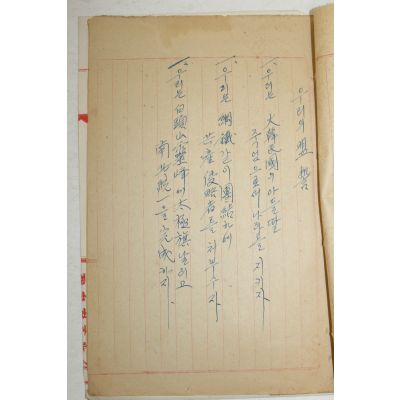 우리의 盟誓
一. 우리는 大韓民國의 아들딸
죽엄으로써 나라를 지키자
一. 우리는 鋼鐵같이 團結하여
共産侵略者를 처부수자
一. 우리는 白頭山靈峰에 太極旗 날리고
南北統一을 完成하자